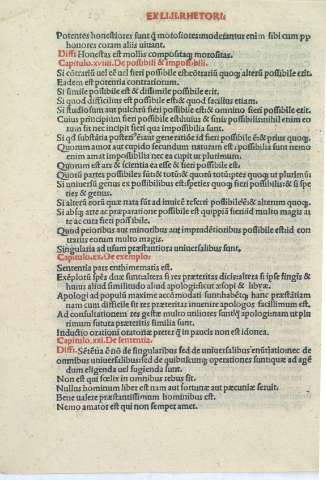 EX LI. II. RHETORI:
Potentes honestiores sunt q̃ motosiores moderantur enim sibi cum pp
honores coram aliis uiuant.
Diffi. Honestas est mollis compositaq; motositas.
Capitulo. xviiii. De possibili & impossibili.
Si cõtrariũ uel eē uel fieri possibile est & cõtrariũ quoq; alterũ possibile erit.
Eadem est potentia contrariorum.
Si simile possibile est & dissimile possibile erit.
Si quod difficilius est possibile est & quod facilius etiam.
Si studiosum aut pulchrũ fieri possibile est & omnino fieri possibile erit.
Cuius principium fieri possibile est huius & finis possibilis nihil enim eo
rum fit nec incipit fieri quæ impossibilia sunt.
Quorum amor aut cupido secundum naturam est: possibilia sunt nemo
enim amat impossibilia nec ea cupit ut plurimum.
Quorum est ars & scientia ea esse & fieri possibile est.
Quorũ partes possibiles sũt & totũ & quorũ totũ ptes quoq; ut plurimũ
Si uniuersũ genus ex possibilibus est species quoq; fieri possibilis: & si spe
cies & genus.
Si absq; arte ac præparatione possibile est quippiã fieri id multo magis ar
te ac cura fieri possibile.
Quod prioribus aut minoribus aut imprudẽtioribus possibile est id con
trariis eorum multo magis.
Singularia ad usum præstantiora uniuersalibus sunt.
Capitulo. xx. De exemplo.
Sententia pars enthimematis est.
Apologi ad populi maxime accõmodati sunt habentq; hanc præstãtiam
nam cum difficile sit res præteritas inuenire apologos facillimum est.
Ad consultationem res gestæ multo utiliores sunt q̃ apologi nam ut plu
rimum futura præteritis similia sunt.
Inductio orationi oratoriæ preter q̃ in paucis non est idonea.
Capitulo. xxi. De sententia.
Diffi. Sẽtẽtia ẽ nõ de singularibus sed de uniuersalibus enũtiatio nec de
omnibus uniuersalibus sed de quibuscunq; operationes sunt quæq; ad agẽ
dum eligenda uel fugienda sunt.
Non est qui fœlix in omnibus rebus sit.
Nullus hominum liber est nam aut fortunæ aut pecuniæ seruit.
Bene ualere præstantissimum hominibus est.
Nemo amator est qui non semper amet.